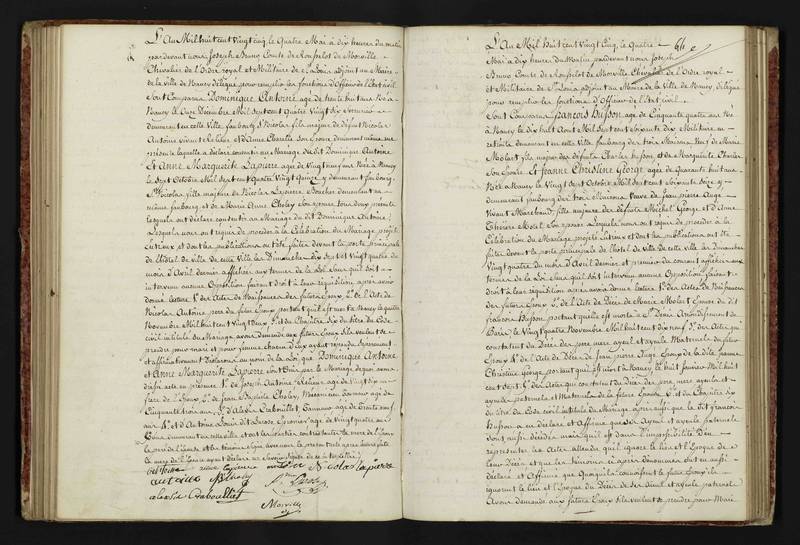 L'An Mil huit cent Vingt cinq, le Quatre Mai à dix heures du matin
pardevant nous Joseph Bruno Comte de Rousselot de Morville
Chevalier de l'Ordre royal et Militaire de St Louis adjoint au Maire
de la Ville de Nancy délégué pour remplir les fonctions d'Officier de l'Etat civil
Sont Comparus Dominique Antoine âgé de trente huit ans Né à
Nancy le Onze Décembre Mil Sept cent Quatre Vingt six
demeurant en cette Ville, faubourg St Nicolas fils majeur de défunt Nicolas
Antoine vivant et de Anne Charotte son Epouse demeurant même
présente laquelle a déclaré consentir au Mariage dudit Dominique Antoine
Et Anne Marguerite Lapierre âgée de Vingt neuf ans Née à Nancy
le Sept Octobre Mil Sept cent Quatre Vingt Quinze y demeurant faubourg
St Nicolas ville majeure de Nicolas Lapierre Boucher demeurant au
même faubourg et de Marie Anne Choley Son épouse tous deux présents
lesquels ont déclaré consentir au Mariage du dit Dominique Antoine
Lesquels nous ont requis de procéder à la Célébration du Mariage projeté
entr'eux et dont les publications ont été faites devant la porte principale
de l'hôtel de Ville de cette Ville les Dimanches dix sept et Vingt quatre du
mois d'Avril dernier affichées aux termes de la Loi Sans qu'il soit
intervenu aucune Opposition faisant droit à leur réquisition, après avoir
donné lecture 1° des Actes de Naissance des futurs Epoux 2° de l'Acte de
Nicolas Antoine père du futur Epoux portant qu'il est mort à Nancy le quatre
Novembre Mil huit cent Vingt Deux 3° et du Chapitre Six du titre du Code
civil intitulé du Mariage avons demandé aux futurs Epoux s'ils veulent se
prendre pour mari et pour femme chacun d'eux ayant répondu séparément
et affirmativement Déclarons au nom de la Loi que Dominique Antoine
et Anne Marguerite Lapierre sont Unis par le Mariage de quoi avons
dressé acte en présence 1° de Joseph Antoine Relieur âgé de Vingt dix
frère de l'Epoux 2° de Jean Baptiste Choley, Menuisier âgé de
Cinquante trois ans 3° d'Alexis Crabouillet, Tanneur âgé de Trente neuf
ans 4° et d'Antoine Louis dit Larose Epronnier âgé de vingt quatre ans
Tous demeurant en cette ville et ont les parties contractantes la mère de l'Epoux
le père de l'épouse et les témoins signé avec nous le présent acte après lecture faite
la mère de l'Epouse ayant déclaré ne savoir signer
Antoine Nicolas Lapierre
antoine Choley
alexis Crabouillet
Morville
66
L'An Mil huit cent Vingt cinq, le Quatre
Mai à dix heures du Matin pardevant nous Joseph
Bruno Comte de Rousselot de Morville Chevalier de l'Ordre royal
et Militaire de St Louis adjoint au Maire de la Ville de Nancy délégué
pour remplir les fonctions d'Officier de l'Etat civil
Sont Comparus François Husson âgé de Cinquante quatre ans Né
à Nancy le dix huit Août Mil Sept cent soixante dix Militaire en
retraite demeurant en cette Ville faubourg des trois Maisons Veuf de Marie
Molart fils majeur des défunts Charles husson et de Marguerite Charles
Son épouse Et Jeanne Christine George âgée de Quarante huit ans
Née à Nancy le Vingt sept Octobre Mil Sept cent Soixante Seize y
demeurant faubourg des trois Maisons Veuve de Jean pierre Auge
Vivant Marchand, fille majeure des défunts Michel George et d'Anne
Thérèse Motel Son épouse Lesquels nous ont requis de procéder à la
Célébration du Mariage projeté entr'eux et dont les publications ont été
faites devant la porte principale de l'hôtel de Ville de cette ville les Dimanches
Vingt quatre du mois d'Avril dernier et premier du courant affichées aux
termes de la Loi sans qu'il soit intervenu aucune Opposition faisant
droit à leur réquisition après avoir donné lecture 1° des Actes de Naissance
des futurs Epoux 2° de l'Acte de Décès de Marie Molart Epouse du dit
François Husson portant qu'elle est morte à St Denis Arrondissement de
Paris le Vingt quatre Novembre Mil huit cent dix neuf 3° des Actes qui
constatent du Décès des père mère ayeul et ayeule Maternels du futur
Epoux 4° de l'Acte de Décès de Jean pierre Auge Epoux de la dite Jeanne
Christine George portant qu'il est mort à Nancy le huit Janvier Mil huit
cent Sept 5° des Actes qui constatent du Décès des père mère ayeuls et
ayeules paternels et Maternels de la future Epouse 6° et du Chapitre Six
du titre du Code civil intitulé du Mariage après aussi que le dit françois
Husson a en déclaré et Affirmé que ses Ayeul et ayeule paternels
sont aussi décédés mais qu'il est dans l'impossibilité d'en
représenter les Actes attendu qu'il ignore le lieu et l'Epoque de
leur Décès et que les témoins ci après dénommés ont aussi
déclaré et Affirmé que Quoiqu'ils connaissent le futur Epoux ils
ignorent le lieu et l'Epoque du Décès de ses ayeul et ayeule paternels
Avons demandé aux futurs Epoux s'ils veulent se prendre pour Mari